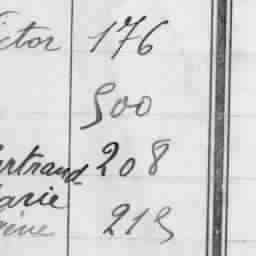 ictor 176
500
ertrand 208
arie
rène 215